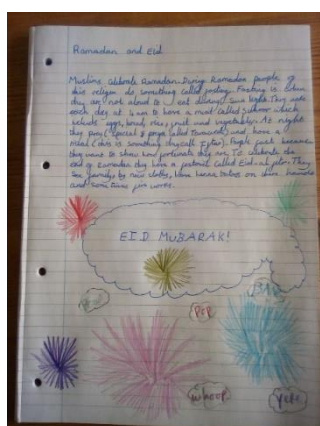 Ramadan and Eid
Muslims celebrate Ramadan. During Ramadan people of
this religon do something called fasting. Fasting is when
they are not aloud to eat during sun light. They wake
each day at 4am to have a meal called which
include eggs, bread, rice, fruit and vegetables. At night
they pray (special prayer called ) and have a
meal (this is something they call iftar). People fast because
they want to show how fortunate they are. To celebrate the
end of Ramadan they have a festival called Eid-ul-fitr. They
see family, buy new clothes, have henna tatoos on their hands
and some times fire works.
EID MUBARAK!
BANG
POP
whoop